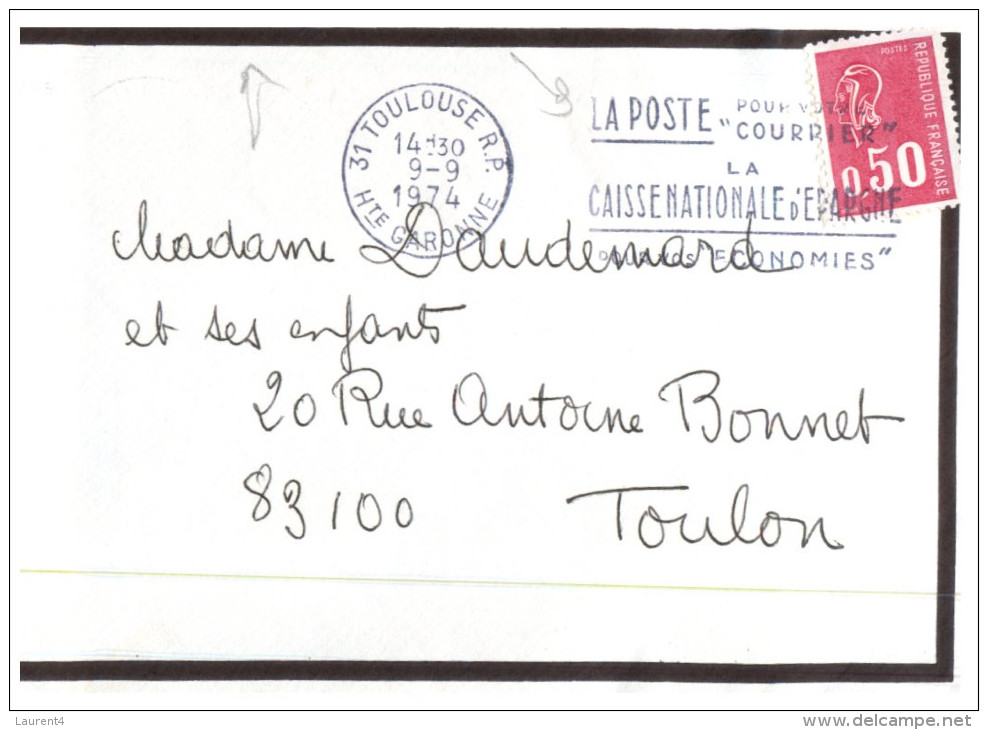 31 TOULOUSE R.P.
14H30
9-9
1974
HTE GARONNE
LA POSTE POUR VOTRE
"COURRIER"
LA
CAISSE NATIONALE d'EPARGNE
POUR VOS "ECONOMIES"
POSTES
REPUBLIQUE FRANÇAISE
0,50
Madame Daudemard
et ses enfants
20 Rue Antoine Bonnet
83100 Toulon
Laurent4
www.delcampe.net